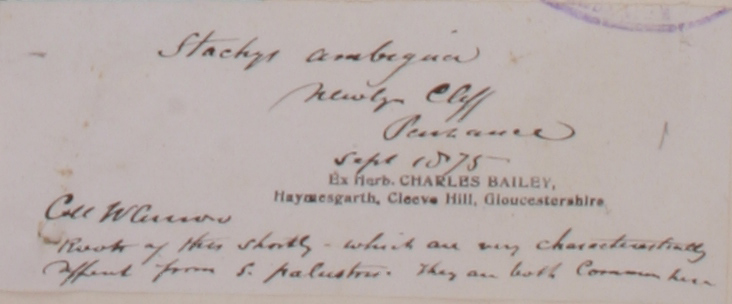 Stachys ambigua
Newlyn Cliff
Penzance
Sept 1875
Ex Herb. CHARLES BAILEY,
Haymesgarth, Cleeve Hill, Gloucestershire
Coll W Curnow
Roots of this shortly - which are very characteristically
differt from S. palustris. They are both Common here